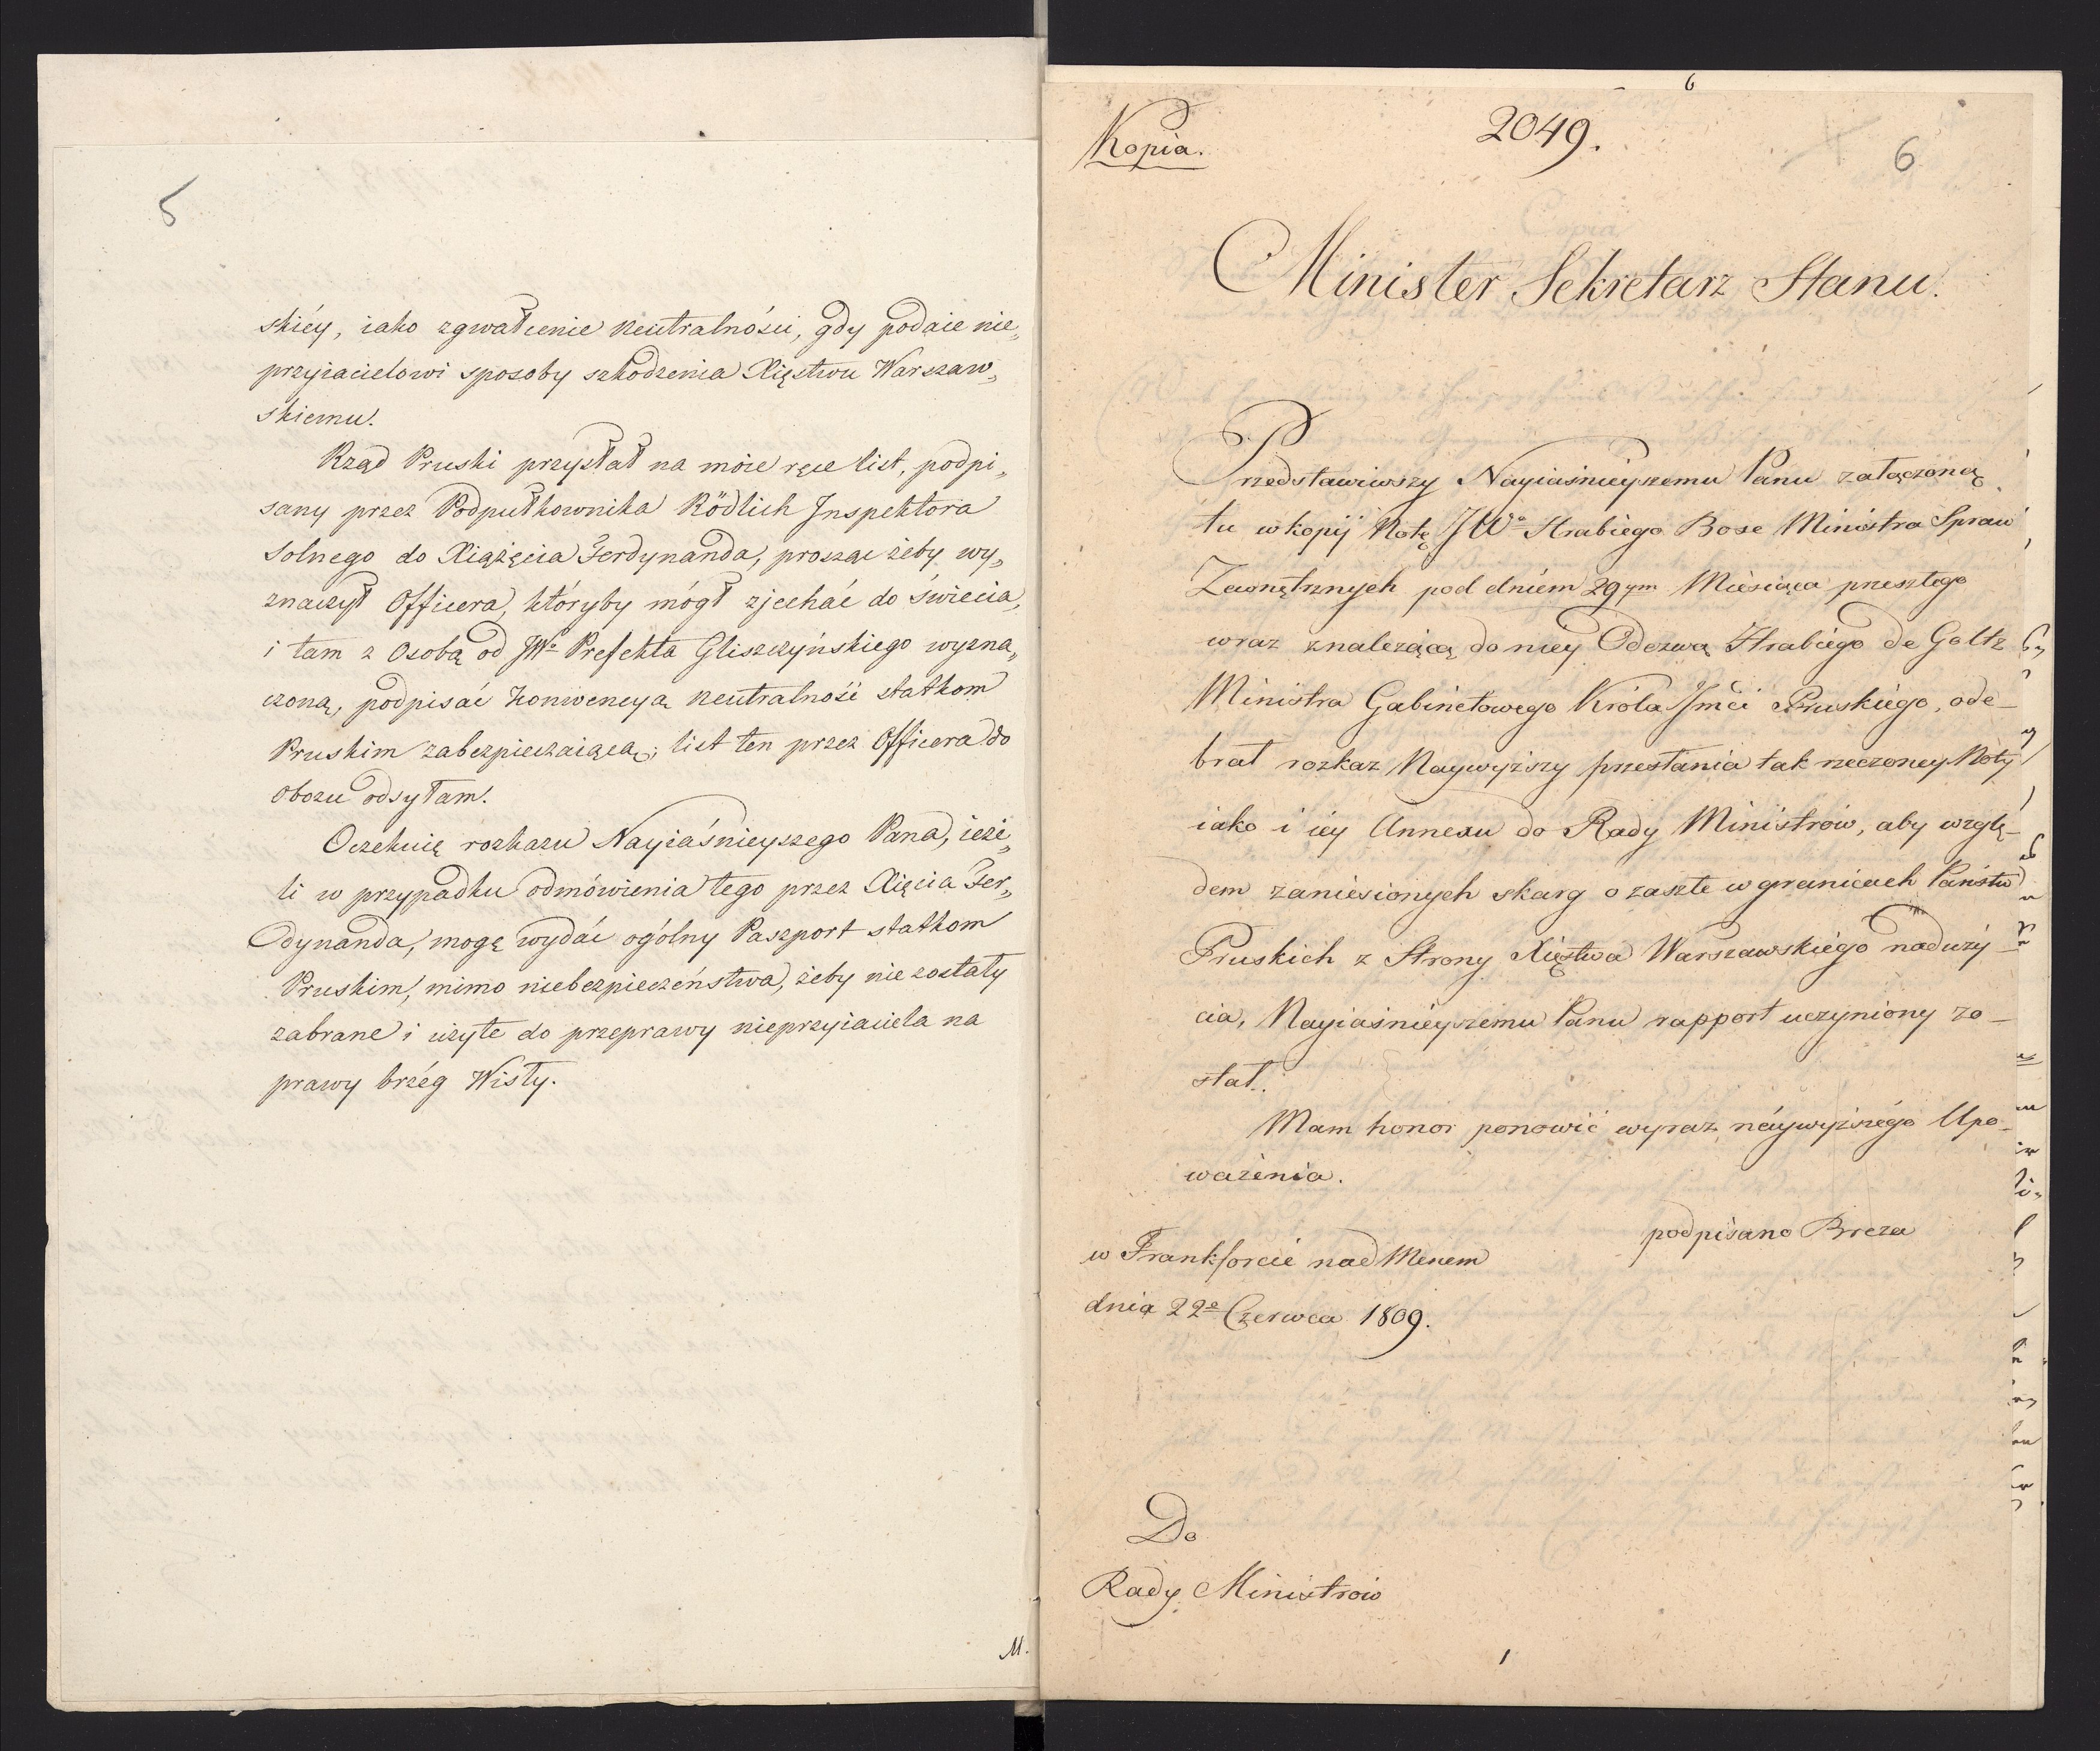 5
skiéy, iako zgwałcenie neutralności, gdy podaie nie„
przyiacielowi sposoby szkodzenia Xięstwu Warszaw„
skiemu.
Rząd Pruski przysłał na moie ręce list, podpi„
sany przez Podpułkownika Rödlich Inspektora
Solnego do Xiążęcia Ferdynanda, prosząc żeby wy„
znaczył Officera, któryby mógł zjechać do Świecia,
i tam z Osobą od JWo Prefekta Gliszczyńskiego wyzna„
czoną, podpisać Konwencyą neutralność statkom
Pruskim zabezpieczaiącą; list ten przez Officera do
obozu odsyłam.
Oczekuię rozkazu Nayiaśnieyszego Pana, ieże„
li w przypadku odmówienia tego przez Xięcia Fer„
dynanda, mogę wydać ogólny Paszport statkom
Pruskim, mimo niebezpieczeństwa, żeby nie zostały
zabrane i użyte do przeprawy nieprzyiaciela na
prawy brzég Wisły.
M.
6
Kopia.
2049.
6
Minister Sekretarz Stanu.
Przedstawiwszy Nayiaśnieyszemu Panu załączoną
tu w kopij Notę JWo Hrabiego Bose Ministra Spraw
Zewnętrznych pod dniem 29ym Miesiąca przeszłego
wraz z należącą do niey Odezwą Hrabiego de Goltz
Ministra Gabinetowego Króla Jmći Pruskiego, ode-
brał rozkaz Naywyższy przesłania tak rzeczoney Noty
iako i iey Annexu do Rady Ministrów, aby wzglę-
dem zaniesionych skarg o zaszłe w granicach Państw
Pruskich z Strony Xięstwa Warszawskiego naduży-
cia, Nayiaśnieyszemu Panu rapport uczyniony zo-
stał.
Mam honor ponowić wyraz naywyższego Upo-
ważenia.
podpisano Breza
w Frankforcie nad Menem
dnia 22o Czerwca 1809.
Do
Rady Ministrów